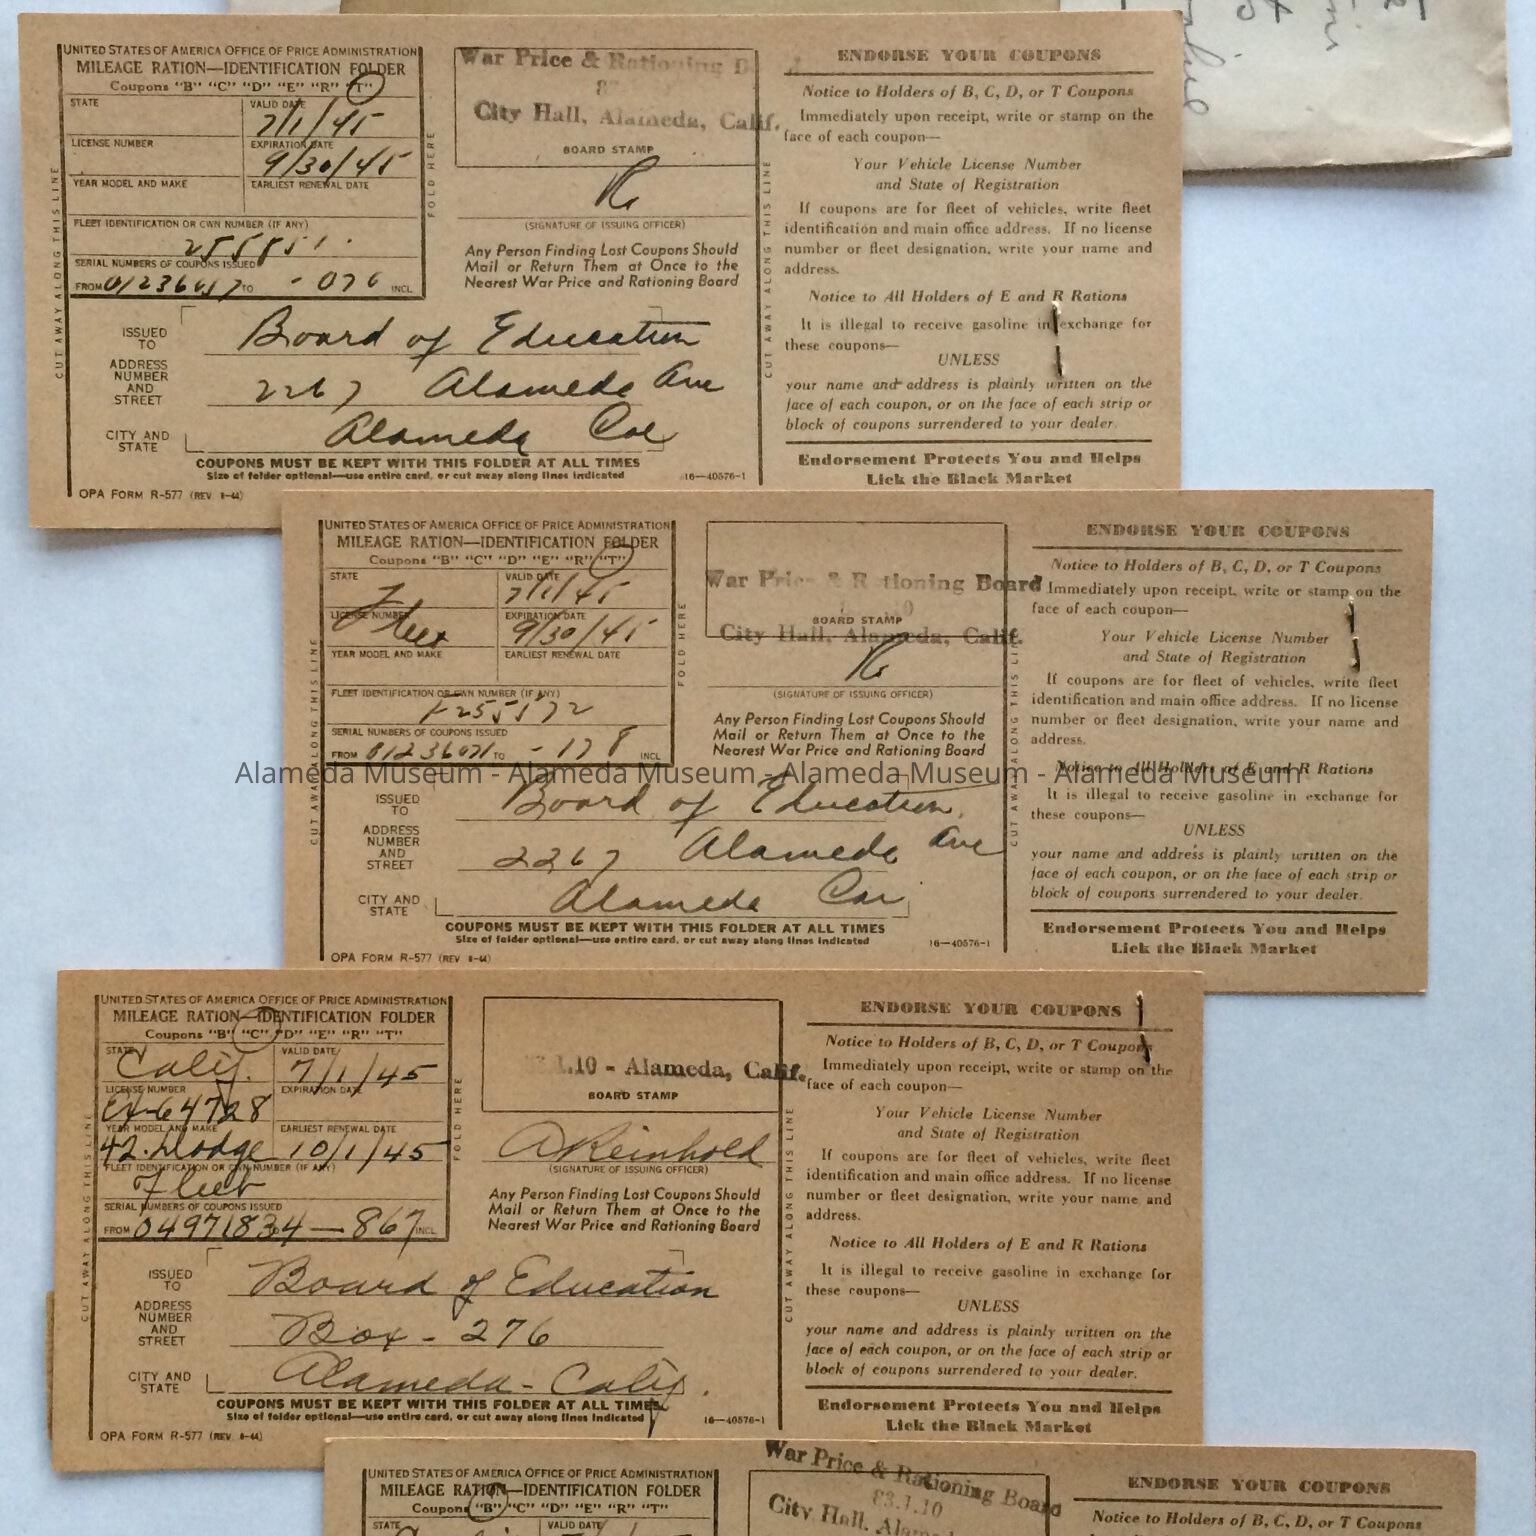 UNITED STATES OF AMERICA OFFICE OF PRICE ADMINISTRATION
MILEAGE RATION—IDENTIFICATION FOLDER
Coupons "B" "C" "D" "E" "R" "T"
STATE
VALID DATE
7/1/45
LICENSE NUMBER
EXPIRATION DATE
9/30/45
YEAR MODEL AND MAKE
EARLIEST RENEWAL DATE
FLEET IDENTIFICATION OR OWN NUMBER (IF ANY)
255851
SERIAL NUMBERS OF COUPONS ISSUED
FROM TO - 076 INCL
CUT AWAY ALONG THIS LINE
FOLD HERE
War Price & Rationing
City Hall, Alameda, Calif.
BOARD STAMP
(SIGNATURE OF ISSUING OFFICER)
Any Person Finding Lost Coupons Should
Mail or Return Them at Once to the
Nearest War Price and Rationing Board
ISSUED TO Board of Education
ADDRESS NUMBER AND STREET 2267 Alameda Ave
CITY AND STATE Alameda Cal
COUPONS MUST BE KEPT WITH THIS FOLDER AT ALL TIMES
Size of folder optional—use entire card, or cut away along lines indicated
16—40576-1
OPA FORM R-577 (REV. 8-44)
CUT AWAY ALONG THIS LINE
ENDORSE YOUR COUPONS
Notice to Holders of B, C, D, or T Coupons
Immediately upon receipt, write or stamp on the
face of each coupon—
Your Vehicle License Number
and State of Registration
If coupons are for fleet of vehicles, write fleet
identification and main office address. If no license
number or fleet designation, write your name and
address.
Notice to All Holders of E and R Rations
It is illegal to receive gasoline in exchange for
these coupons—
UNLESS
your name and address is plainly written on the
face of each coupon, or on the face of each strip or
block of coupons surrendered to your dealer.
Endorsement Protects You and Helps
Lick the Black Market
UNITED STATES OF AMERICA OFFICE OF PRICE ADMINISTRATION
MILEAGE RATION—IDENTIFICATION FOLDER
Coupons "B" "C" "D" "E" "R" "T"
STATE
VALID DATE
7/1/45
LICENSE NUMBER
Fleet
EXPIRATION DATE
9/30/45
YEAR MODEL AND MAKE
EARLIEST RENEWAL DATE
FLEET IDENTIFICATION OR OWN NUMBER (IF ANY)
SERIAL NUMBERS OF COUPONS ISSUED
FROM 01236071 TO - 178 INCL
CUT AWAY ALONG THIS LINE
FOLD HERE
War Price & Rationing Board
BOARD STAMP
City Hall, Alameda, Calif.
(SIGNATURE OF ISSUING OFFICER)
Any Person Finding Lost Coupons Should
Mail or Return Them at Once to the
Nearest War Price and Rationing Board
Alameda Museum - Alameda Museum - Alameda Museum - Alameda Museum
ISSUED TO Board of Education
ADDRESS NUMBER AND STREET 2267 Alameda Ave
CITY AND STATE Alameda Cal
COUPONS MUST BE KEPT WITH THIS FOLDER AT ALL TIMES
Size of folder optional—use entire card, or cut away along lines indicated
16—40576-1
OPA FORM R-577 (REV 8-44)
CUT AWAY ALONG THIS LINE
ENDORSE YOUR COUPONS
Notice to Holders of B, C, D, or T Coupons
Immediately upon receipt, write or stamp on the
face of each coupon—
Your Vehicle License Number
and State of Registration
If coupons are for fleet of vehicles, write fleet
identification and main office address. If no license
number or fleet designation, write your name and
address.
Notice to All Holders of E and R Rations
It is illegal to receive gasoline in exchange for
these coupons—
UNLESS
your name and address is plainly written on the
face of each coupon, or on the face of each strip or
block of coupons surrendered to your dealer.
Endorsement Protects You and Helps
Lick the Black Market
UNITED STATES OF AMERICA OFFICE OF PRICE ADMINISTRATION
MILEAGE RATION—IDENTIFICATION FOLDER
Coupons "B" "C" "D" "E" "R" "T"
STATE
Calif.
VALID DATE
7/1/45
LICENSE NUMBER
Ex-64728
EXPIRATION DATE
YEAR MODEL AND MAKE
42. Dodge
EARLIEST RENEWAL DATE
10/1/45
FLEET IDENTIFICATION OR OWN NUMBER (IF ANY)
Fleet
SERIAL NUMBERS OF COUPONS ISSUED
FROM 04971834 — 867 INCL
CUT AWAY ALONG THIS LINE
FOLD HERE
.1.10 - Alameda, Calif.
BOARD STAMP
A Reinhold
(SIGNATURE OF ISSUING OFFICER)
Any Person Finding Lost Coupons Should
Mail or Return Them at Once to the
Nearest War Price and Rationing Board
ISSUED TO Board of Education
ADDRESS NUMBER AND STREET Box - 276
CITY AND STATE Alameda - Calif.
COUPONS MUST BE KEPT WITH THIS FOLDER AT ALL TIMES
Size of folder optional—use entire card, or cut away along lines indicated
16—40576-1
OPA FORM R-577 (REV. 8-44)
CUT AWAY ALONG THIS LINE
ENDORSE YOUR COUPONS
Notice to Holders of B, C, D, or T Coupons
Immediately upon receipt, write or stamp on the
face of each coupon—
Your Vehicle License Number
and State of Registration
If coupons are for fleet of vehicles, write fleet
identification and main office address. If no license
number or fleet designation, write your name and
address.
Notice to All Holders of E and R Rations
It is illegal to receive gasoline in exchange for
these coupons—
UNLESS
your name and address is plainly written on the
face of each coupon, or on the face of each strip or
block of coupons surrendered to your dealer.
Endorsement Protects You and Helps
Lick the Black Market
UNITED STATES OF AMERICA OFFICE OF PRICE ADMINISTRATION
MILEAGE RATION—IDENTIFICATION FOLDER
Coupons "B" "C" "D" "E" "R" "T"
STATE
VALID DATE
War Price & Rationing Board
83.1.10
City Hall, Alameda
ENDORSE YOUR COUPONS
Notice to Holders of B, C, D, or T Coupons